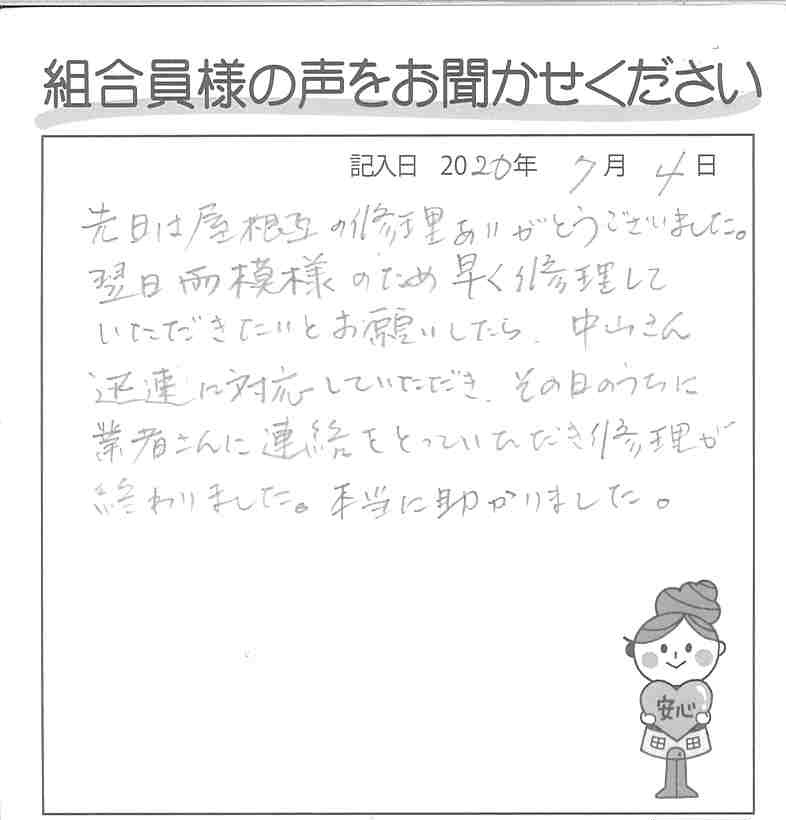 組合員様の声をお聞かせください
記入日 2020年 7月 4日
先日は屋根瓦の修理ありがとうございました。
翌日雨模様のため早く修理して
いただきたいとお願いしたら、中山さん
迅速に対応していただき、その日のうちに
業者さんに連絡をとっていただき修理が
終わりました。本当に助かりました。
安心